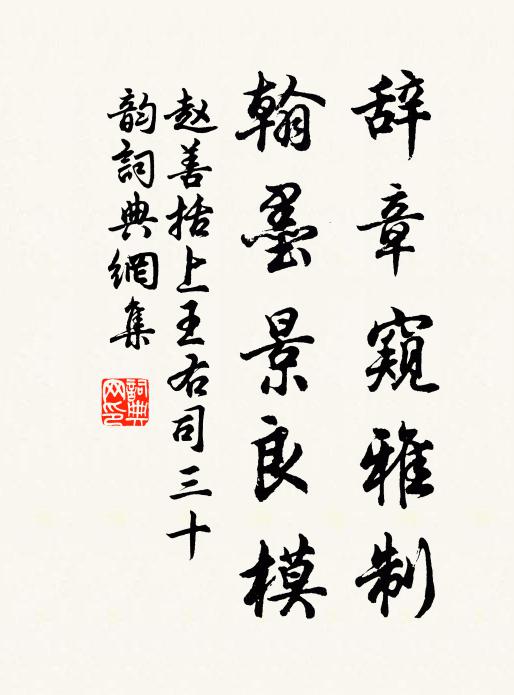 辞章窥雅制
翰墨景良模
赵善括上王右司三十
韵詞典網集
詞典网印